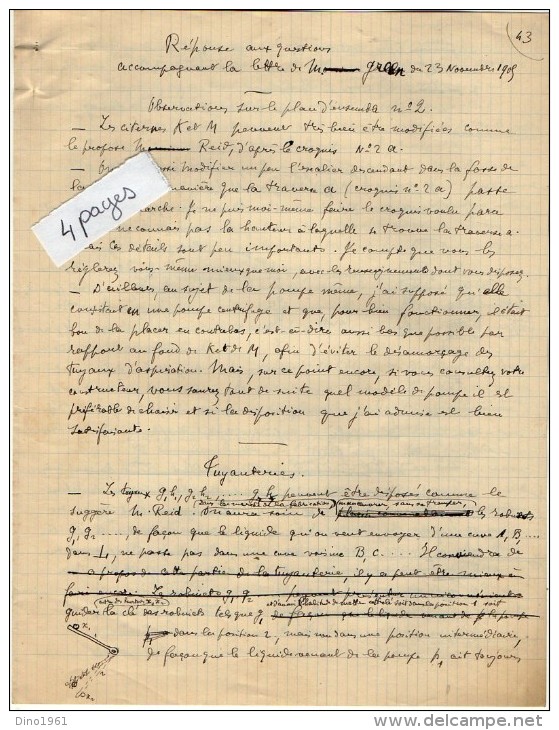 43
Réponse aux questions
accompagnant la lettre de M green du 23 Novembre 1905
Observations sur le plan d'ensemble n° 2.
— Les citernes K et M peuvent très bien être modifiées comme
le propose Reid, d'après le croquis N° 2 a.
modifier un peu l'escalier descendant dans la fosse de
la manière que la traverse a (croquis n° 2 a) passe
marche. Je ne puis moi-même faire le croquis voulu parce
ne connais pas la hauteur à laquelle se trouve la traverse a.
les détails sont peu importants. Je compte que vous les
règlerez vous-même mieux que moi, avec les renseignements dont vous disposez.
4 pages
— D'ailleurs, au sujet de la pompe même, j'ai supposé qu'elle
consistait en une pompe centrifuge et que, pour bien fonctionner, il était
bon de la placer en contrebas, c'est-à-dire aussi bas que possible par
rapport au fond de K et de M, afin d'éviter le désamorçage des
tuyaux d'aspiration. Mais, sur ce point encore, si vous consultez votre
constructeur, vous saurez tout de suite quel modèle de pompe il est
préférable de choisir et si la disposition que j'ai admise est bien
satisfaisante.
Tuyauteries.
— Les tuyaux g, h, g₂ h₂ ..... peuvent être disposés comme le
suggère M. Reid. On aura soin de les robinets
g, g₂ ....., de façon que le liquide qu'on veut envoyer d'une cuve A, B, ...
dans L, ne passe pas dans une cuve voisine B C ... Il conviendra de
à propos de cette partie de la tuyauterie, il y a peut être mieux à
faire encore. Les robinets g, g₂
guider la clé des robinets tels que g,
dans la position 2, mais non dans une position intermédiaire,
de façon que le liquide venant de la pompe p₁ ait toujours
Dino1961
delcampe.net